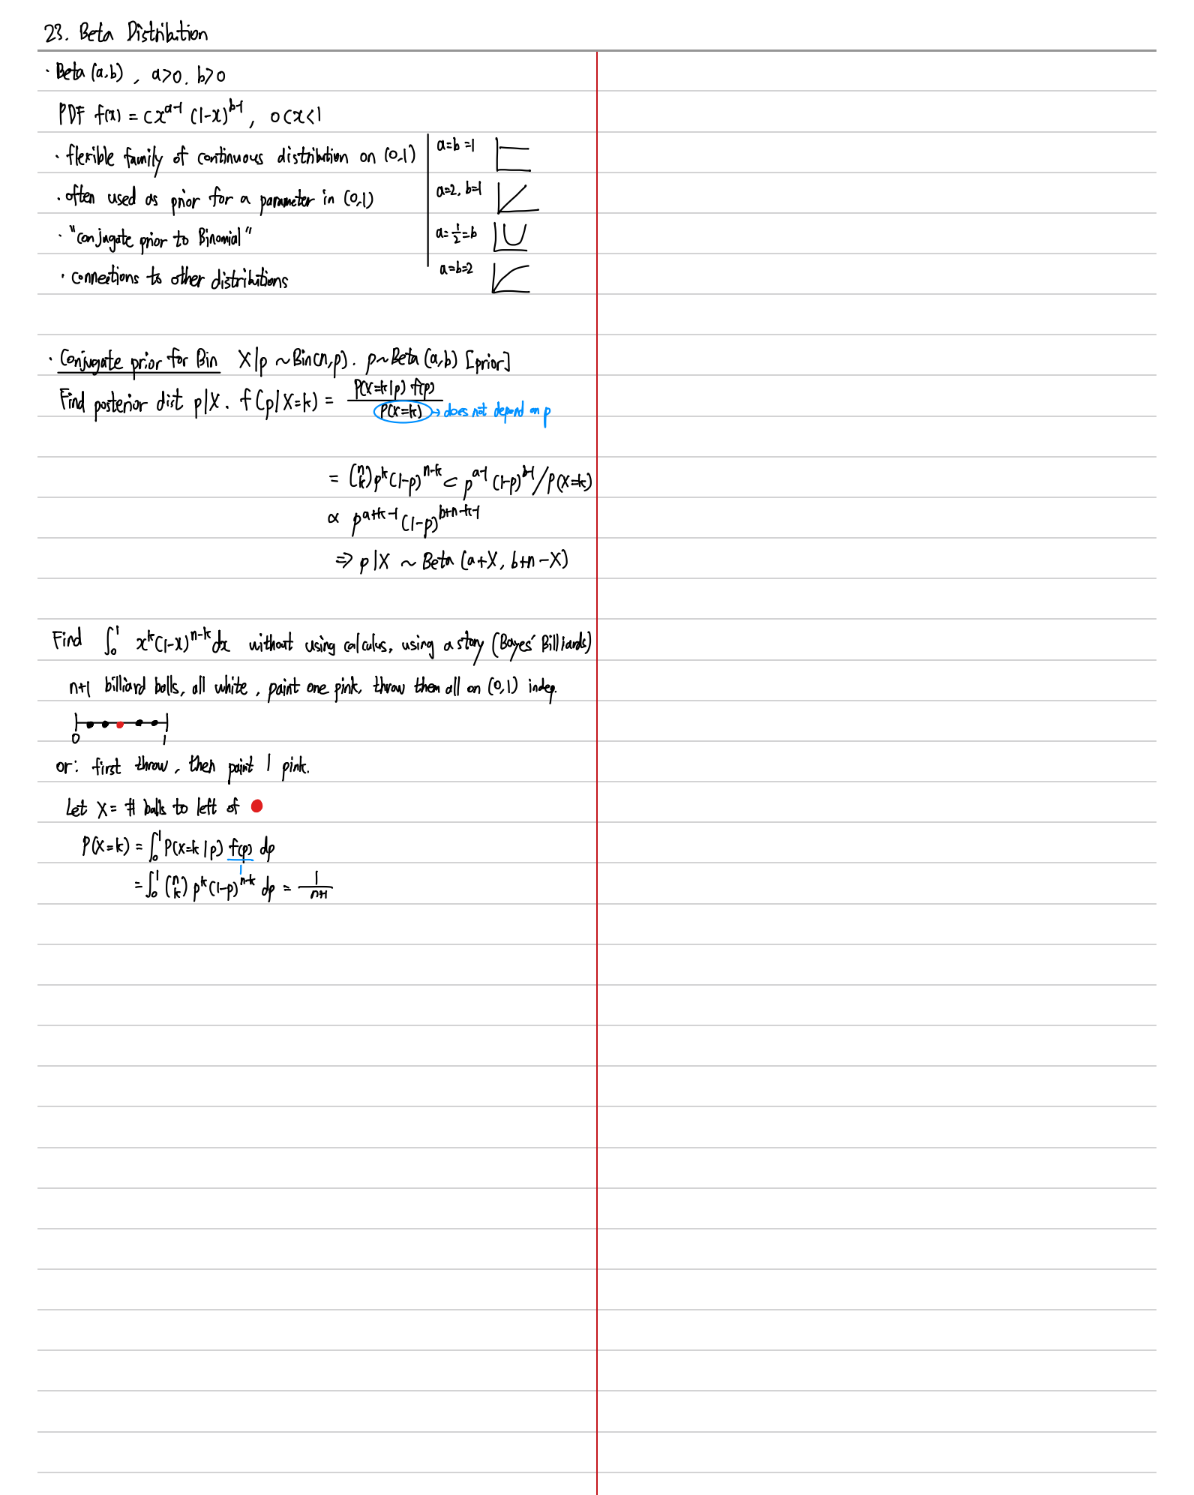 23. Beta Distribution
· Beta (a,b) , a>0, b>0
PDF f(x) = cx^{a-1} (1-x)^{b-1}, 0<x<1
· flexible family of continuous distribution on (0,1)
· often used as prior for a parameter in (0,1)
· "conjugate prior to Binomial"
· connections to other distributions
a=b=1
a=2, b=1
a=1/2=b
a=b=2
· Conjugate prior for Bin X|p ~Bin(n,p). p~Beta (a,b) [prior]
Find posterior dist p|X. f(p|X=k) = P(X=k|p) f(p) / P(X=k) → does not depend on p
= (n k) p^k (1-p)^{n-k} c p^{a-1} (1-p)^{b-1} / P(X=k)
∝ p^{a+k-1} (1-p)^{b+n-k-1}
⇒ p|X ~ Beta (a+X, b+n-X)
Find ∫_0^1 x^k (1-x)^{n-k} dx without using calculus, using a story (Bayes' Billiards)
n+1 billiard balls, all white, paint one pink, throw them all on (0,1) indep.
0 1
or: first throw, then paint 1 pink.
Let X = # balls to left of
P(X=k) = ∫_0^1 P(X=k|p) f(p) dp
1
= ∫_0^1 (n k) p^k (1-p)^{n-k} dp = 1/(n+1)